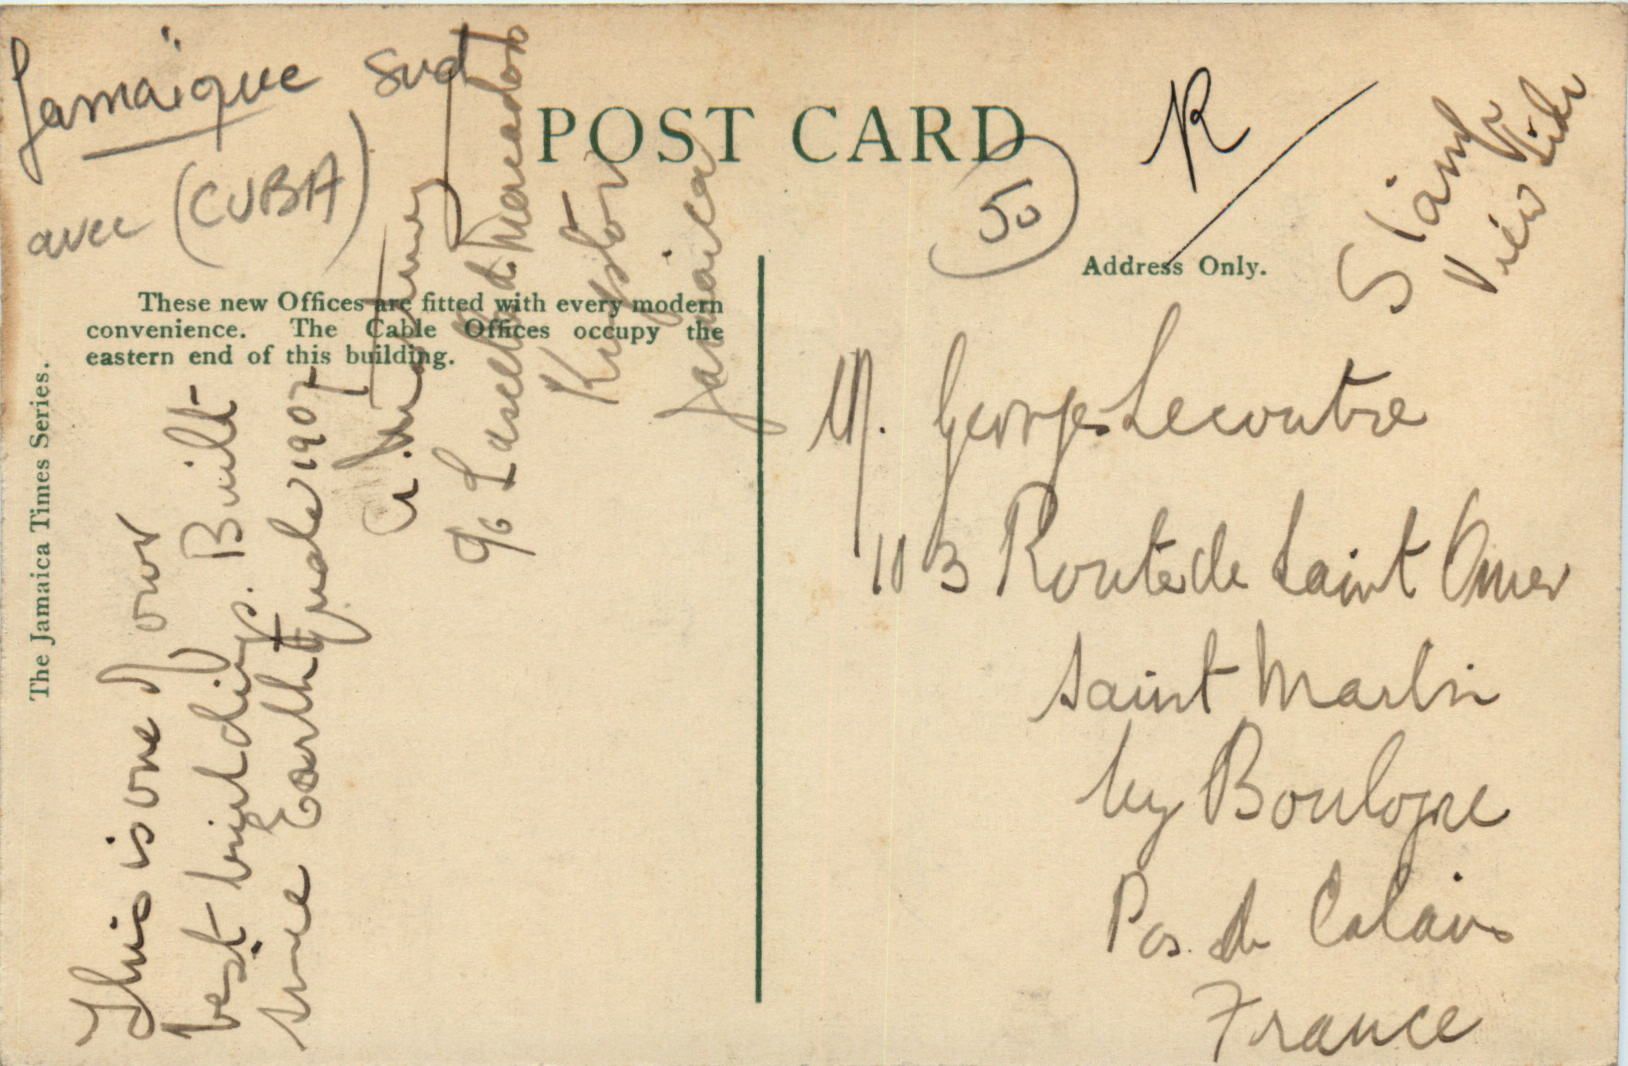 Jamaïque Sud
avec (CUBA)
POST CARD
50
R
Stamp
View Side
Address Only.
These new Offices are fitted with every modern
convenience. The Cable Offices occupy the
eastern end of this building.
The Jamaica Times Series.
This is one of our
best buildings. Built
since Earthquake 1907
c/o Lascelles d.
Kingston
Jamaica
M. Georges Lecoutre
103 Route de Saint Omer
Saint Martin
by Boulogne
Pas de Calais
France